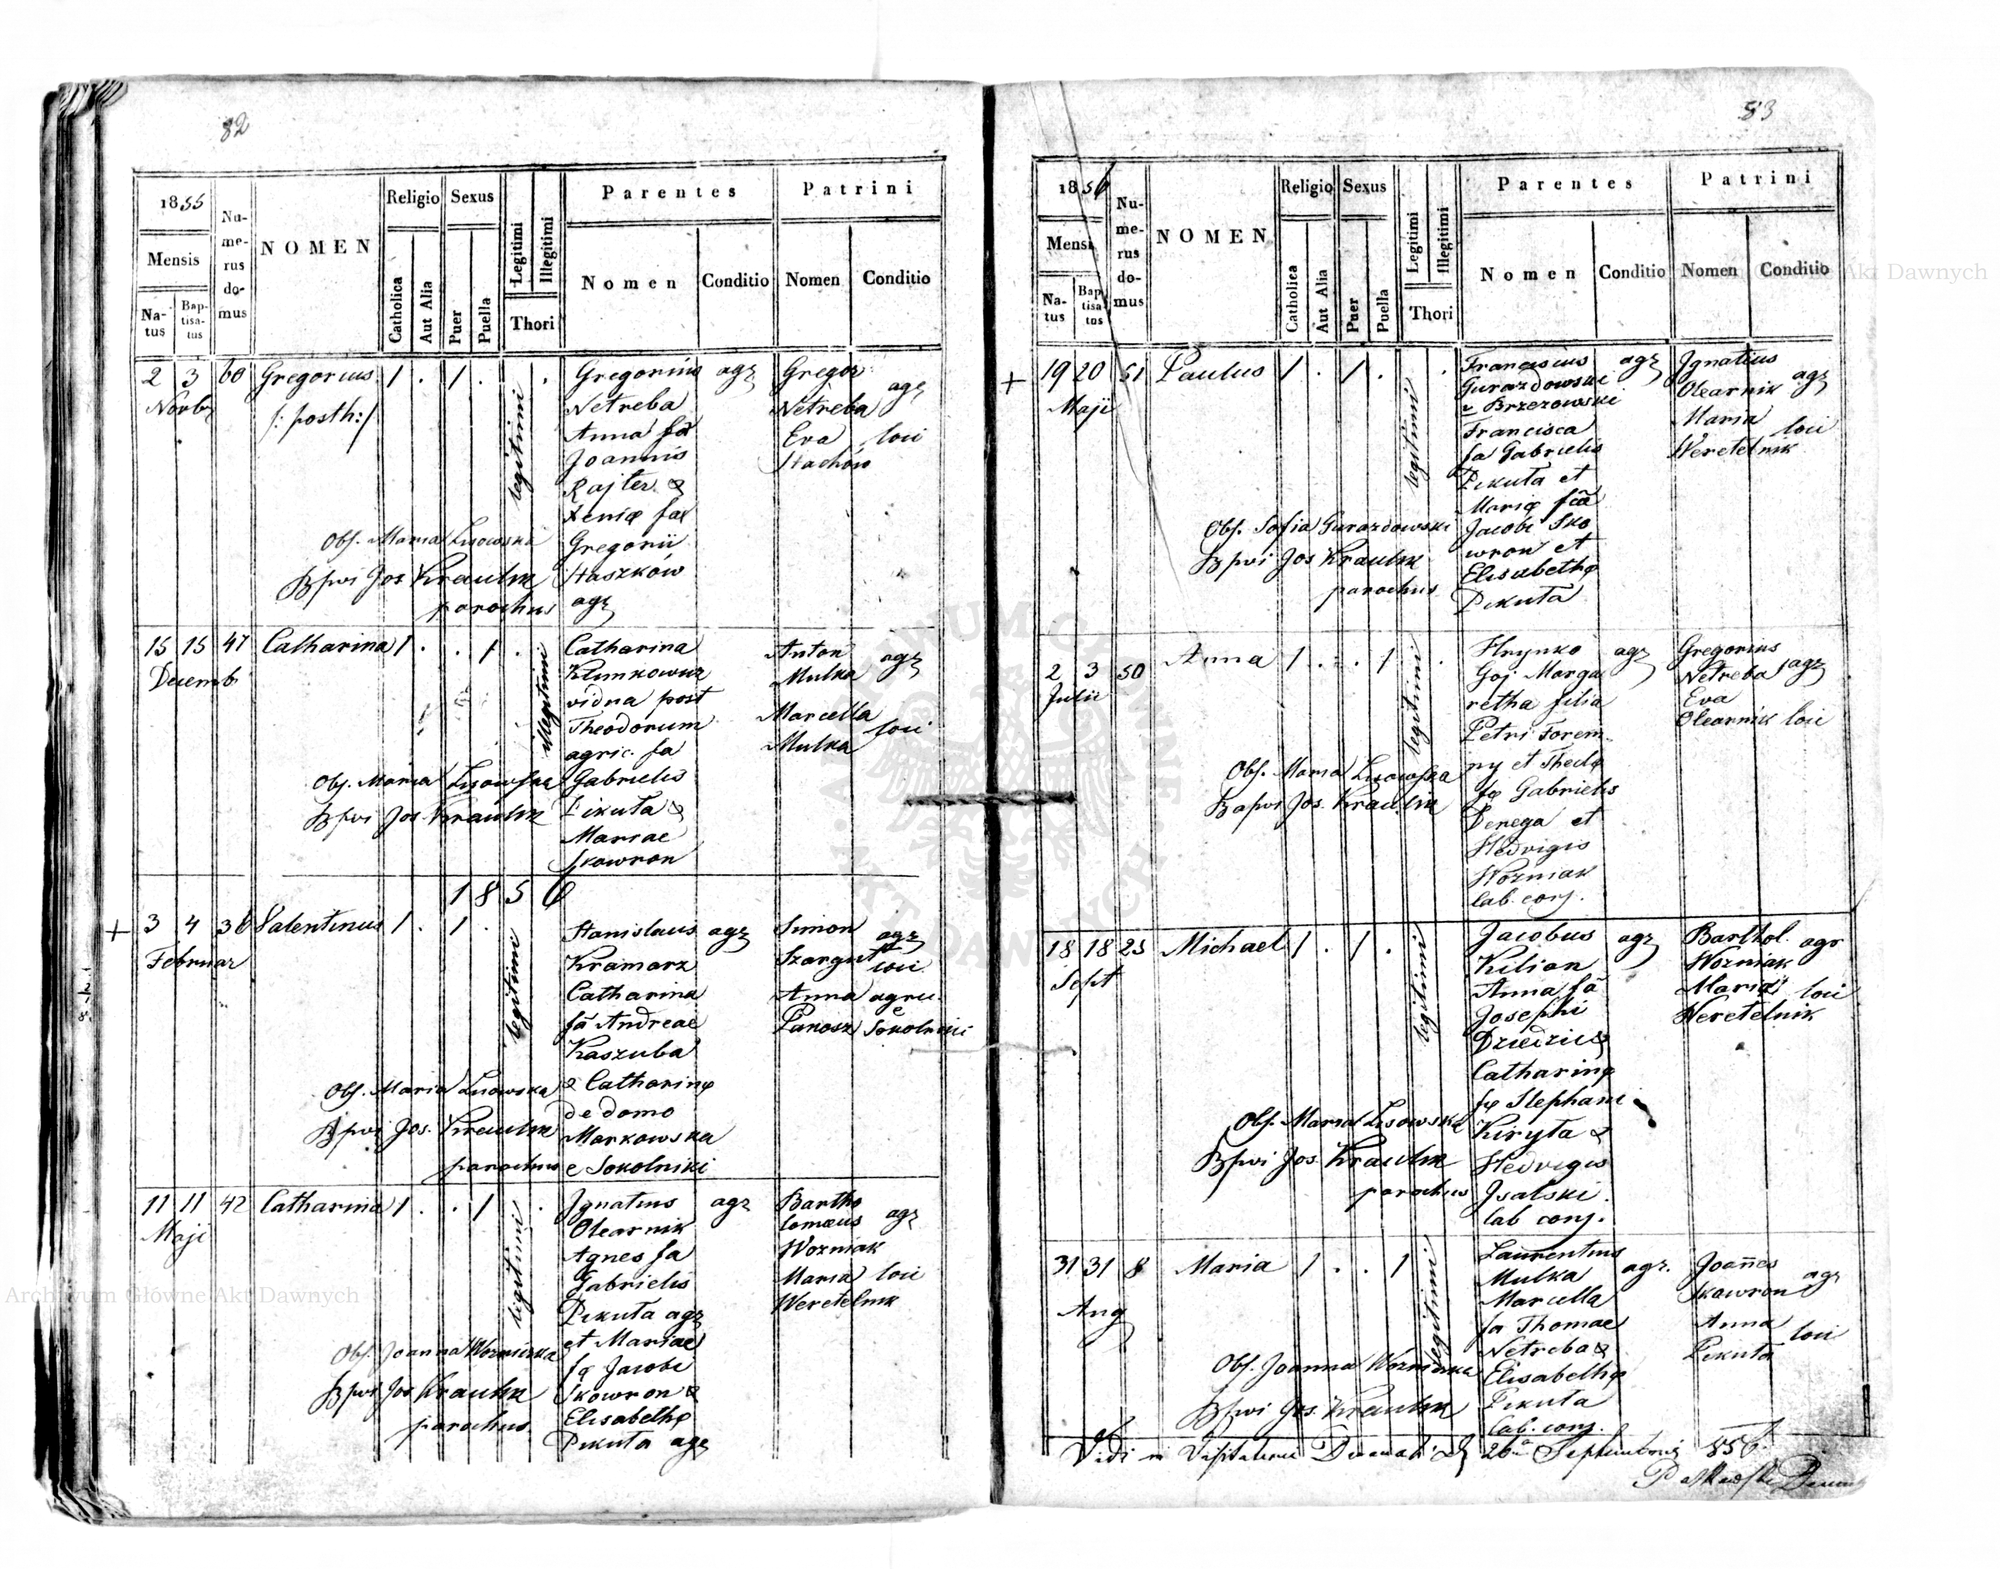 82
1855
Mensis
Natus
Baptisatus
Numerus domus
NOMEN
Religio
Catholica
Aut Alia
Sexus
Puer
Puella
Legitimi
Illegitimi
Thori
Parentes
Nomen
Conditio
Patrini
Nomen
Conditio
2 3 60 Gregorius 1 . 1 . .
Novb
/: posth:/
legitimi
Gregorius agr
Netreba
Anna fa
Joannis
Rajter &
Xeniæ fæ
Gregorii
Staszków
agr
Gregor
Netreba agr
Eva loci
Stachów
Obs. Maria Lisowska
Bpvi Jos Kraulik
parochus
15 15 47 Catharina 1 . . 1 .
Decemb
illegitimi
Catharina
Klimkowicz
vidua post
Theodorum
agric. fa
Gabrielis
Pikuta &
Mariae
Skowron
Anton agr
Mulka
Marcella loci
Mulka
Obs. Maria Lisowska
Bpvi Jos. Kraulik
1856
+ 3 4 36 Valentinus 1 . 1 .
Februar
legitimi
Stanislaus agr
Kramarz
Catharina
fa Andreae
Kaszuba
& Catharinæ
de domo
Markowska
e Sokolniki
Simon agr
Szargut loci
Anna agric.
Panosz e Sokolniki
Obs. Maria Lisowska
Bpvi Jos. Kraulik
parochus
11 11 42 Catharina 1 . . 1 .
Maji
legitimi
Ignatius agr
Olearnik
Agnes fa
Gabrielis
Pikuta agr
et Mariae
fæ Jacobi
Skowron &
Elisabethæ
Pikuta agr
Bartho
lomæus agr
Wozniak
Maria loci
Weretelnik
Obs. Joanna Wozniczka
Bpvi Jos Kraulik
parochus
83
1856
Mensi
Natus
Baptisatus
Numerus domus
NOMEN
Religio
Catholica
Aut Alia
Sexus
Puer
Puella
Legitimi
Illegitimi
Thori
Parentes
Nomen
Conditio
Patrini
Nomen
Conditio
+ 19 20 51 Paulus 1 . 1 . .
Maji
legitimi
Franciscus agr
Gurazdowski
v Brzezowski
Francisca
fa Gabrielis
Pikuta et
Mariæ fæ
Jacobi Sko
wron et
Elisabethæ
Pikuta
Ignatius
Olearnik agr
Maria loci
Weretelnik
Obs. Sofia Gurazdowski
Bpvi Jos Kraulik
parochus
2 3 50 Anna 1 . . 1 .
Julii
legitimi
Hrynko agr
Goj Marga
retha filia
Petri Forem
ny et Theclæ
fæ Gabrielis
Derega et
Hedvigis
Wozniak
lab. conj.
Gregorius
Netreba agr
Eva
Olearnik loci
Obs. Maria Lisowska
Bapvi Jos. Kraulik
18 18 25 Michael 1 . 1 .
Sept
legitimi
Jacobus agr
Kilian
Anna fa
Josephi
Dziedzic &
Catharinæ
fæ Stephani
Kiryta &
Hedvigis
Isalski.
lab conj.
Barthol. agr
Wozniak
Maria loci
Weretelnik
Obs. Maria Lisowska
Bpvi Jos. Kraulik
parochus
31 31 8 Maria 1 . . 1
Aug
legitimi
Laurentius
Mulka agr.
Marcella
fa Thomae
Netreba &
Elisabethæ
Pikuta
lab. conj.
Joañes
Skowron agr
Anna loci
Pikuta
Obs. Joanna Wozniczka
Bpvi Jos. Kraulik
Vidi in 26 Septembris 856
Archiwum Główne Akt Dawnych